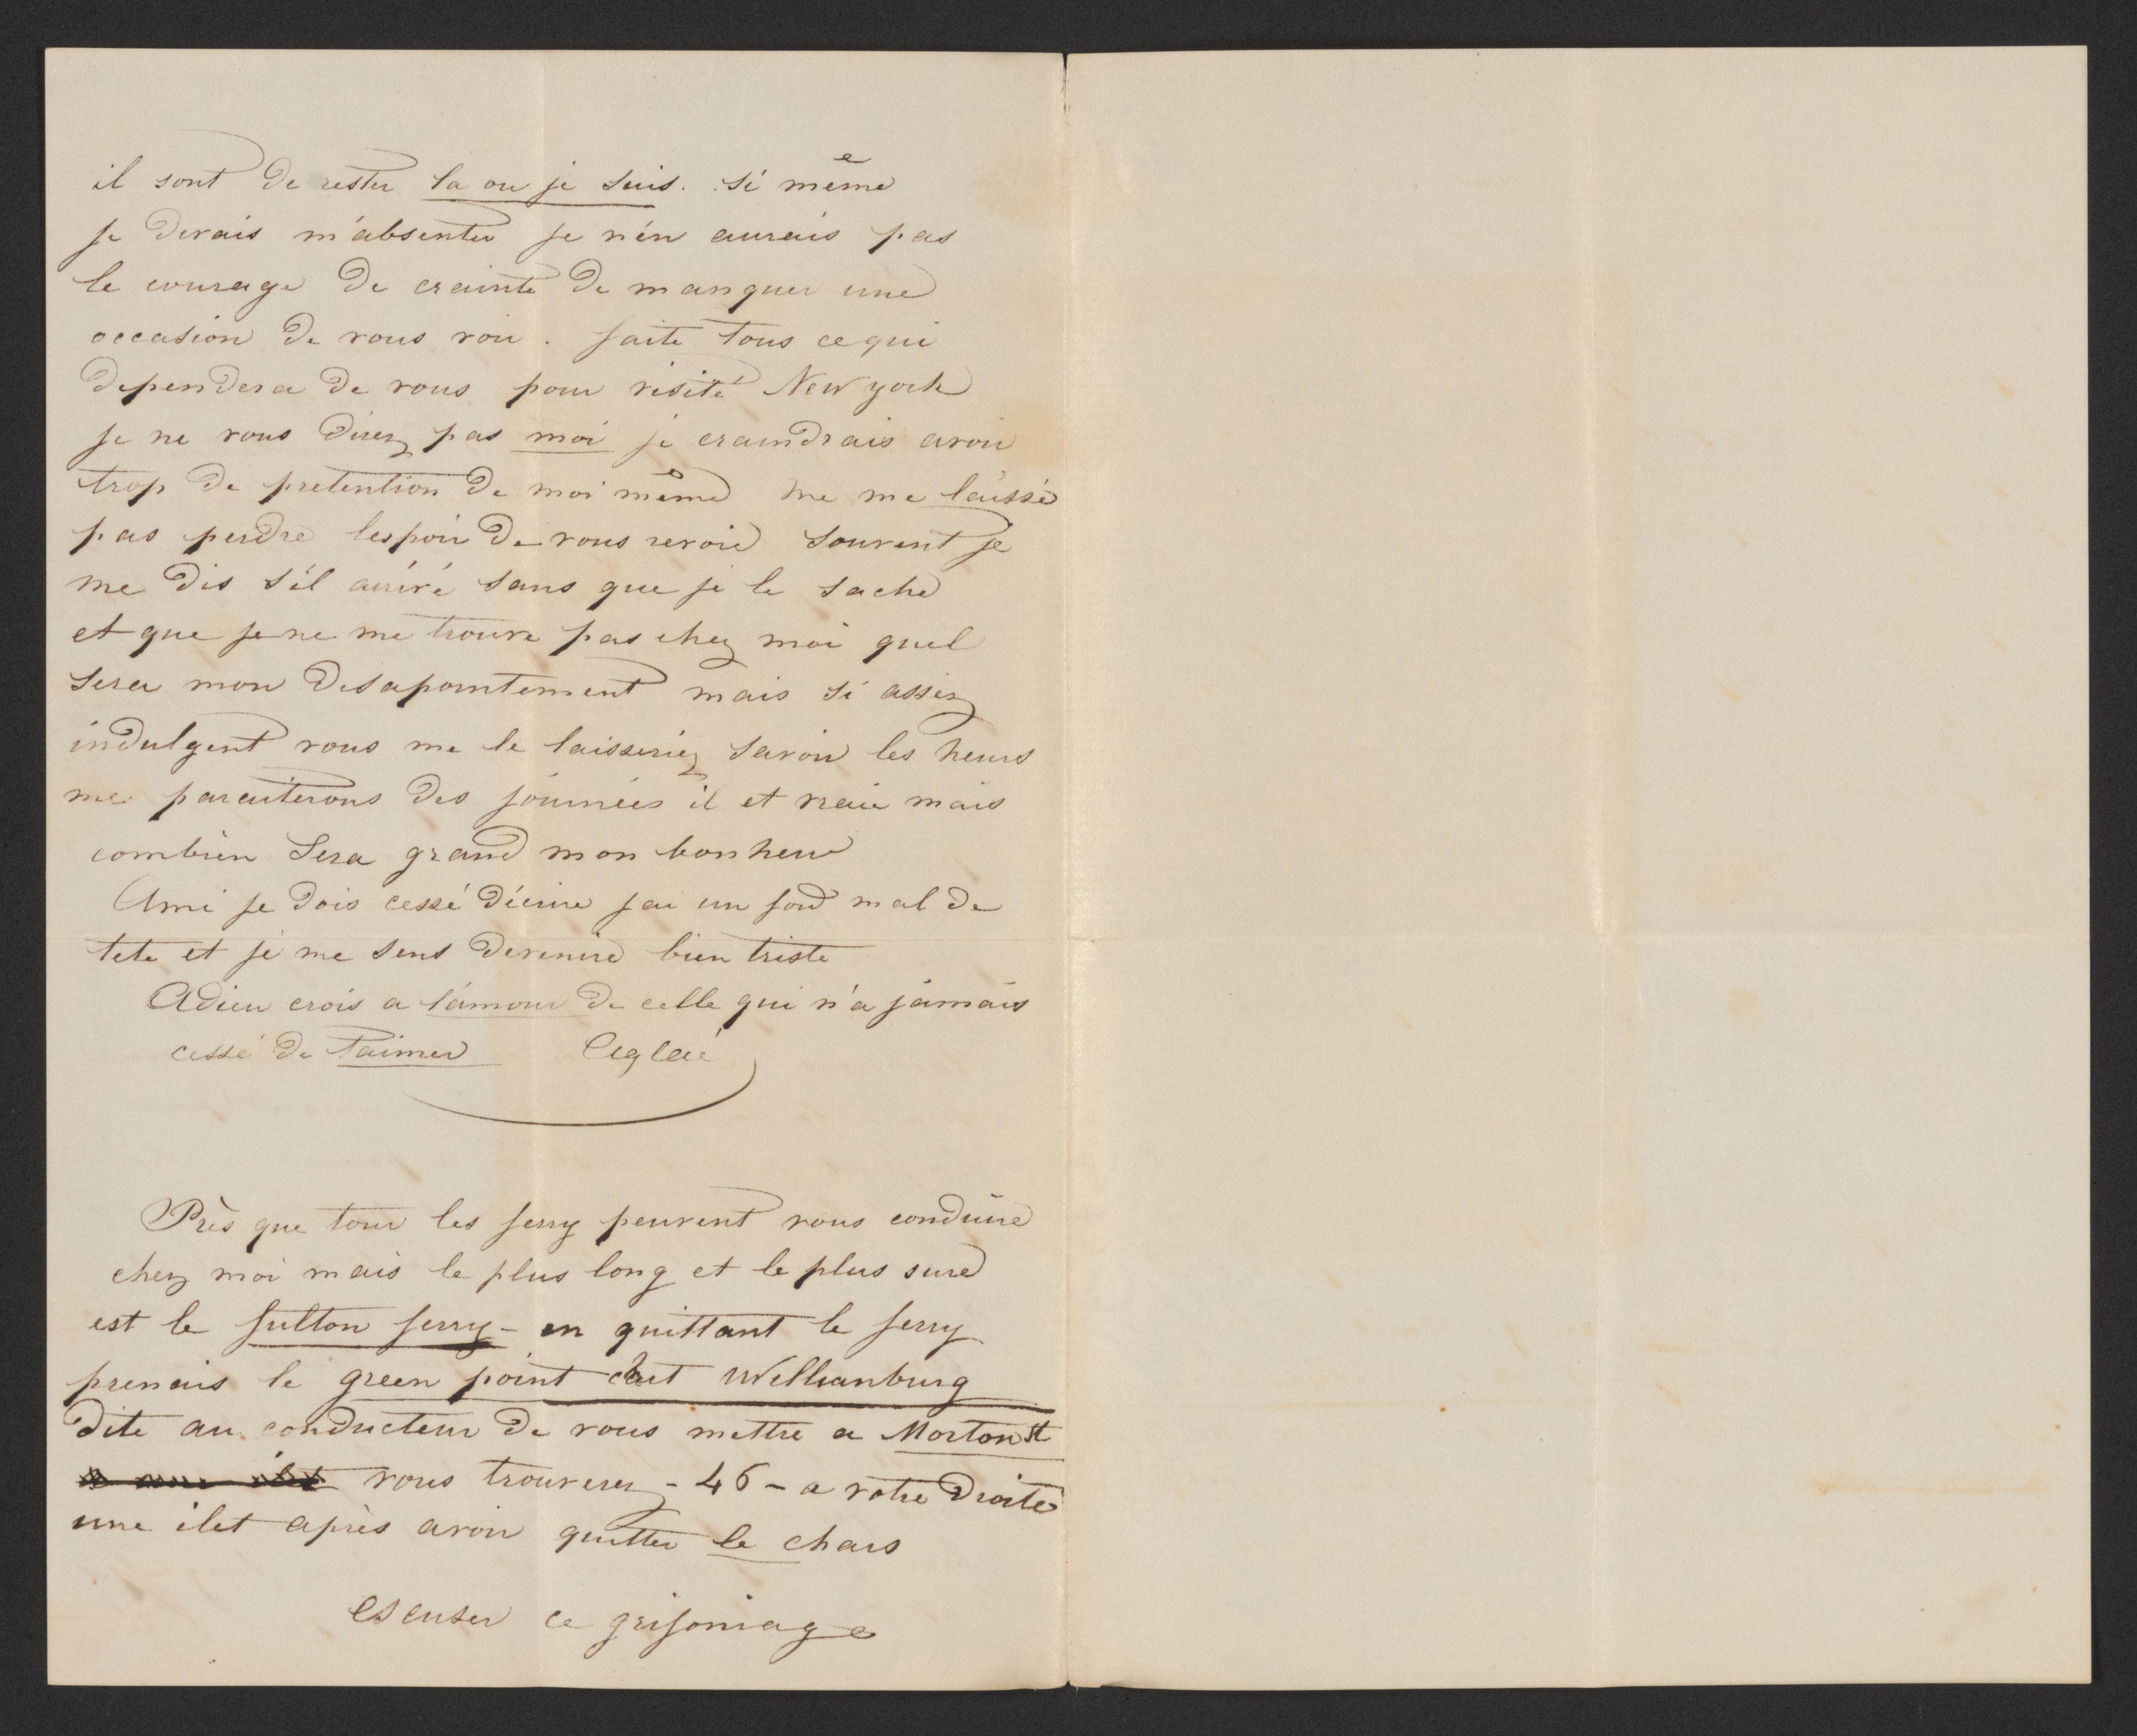 il sont de rester la ou je suis. si même
je devais m'absenter je n'én aurais pas
le courage de crainte de manquer une
occasion de vous voir. faite tous ce qui
dependera de vous pour visité New york
je ne vous direz pas moi je craindrais avoir
trop de pretention de moi même ne me laissé
pas perdre lespoir de vous revoir souvent je
me dis s'il arrivé sans que je le sache
et que je ne me trouve pas chez moi quel
sera mon desapointement mais si assez
indulgent vous me le laisseriez savoir les heurs
me paraiterons des journées il et vraie mais
combien sera grand mon bonheur
Ami je dois cessé décrire jai un ford mal de
tete et je me sens devenire bien triste
Adieu crois a l'amour de celle qui n'a jamais
cessé de t'aimer Aglaé
Près que tour les ferry peuvent vous conduire
chez moi mais le plus long et le plus sure
est le fulton ferry - en quittant le ferry
prenais le green point Willianburg
dite au conducteur de vous mettre a Morton st
vous trouverez - 46 - a votre droite
une ilet après avoir quitter le chars
escuser ce grifoniage